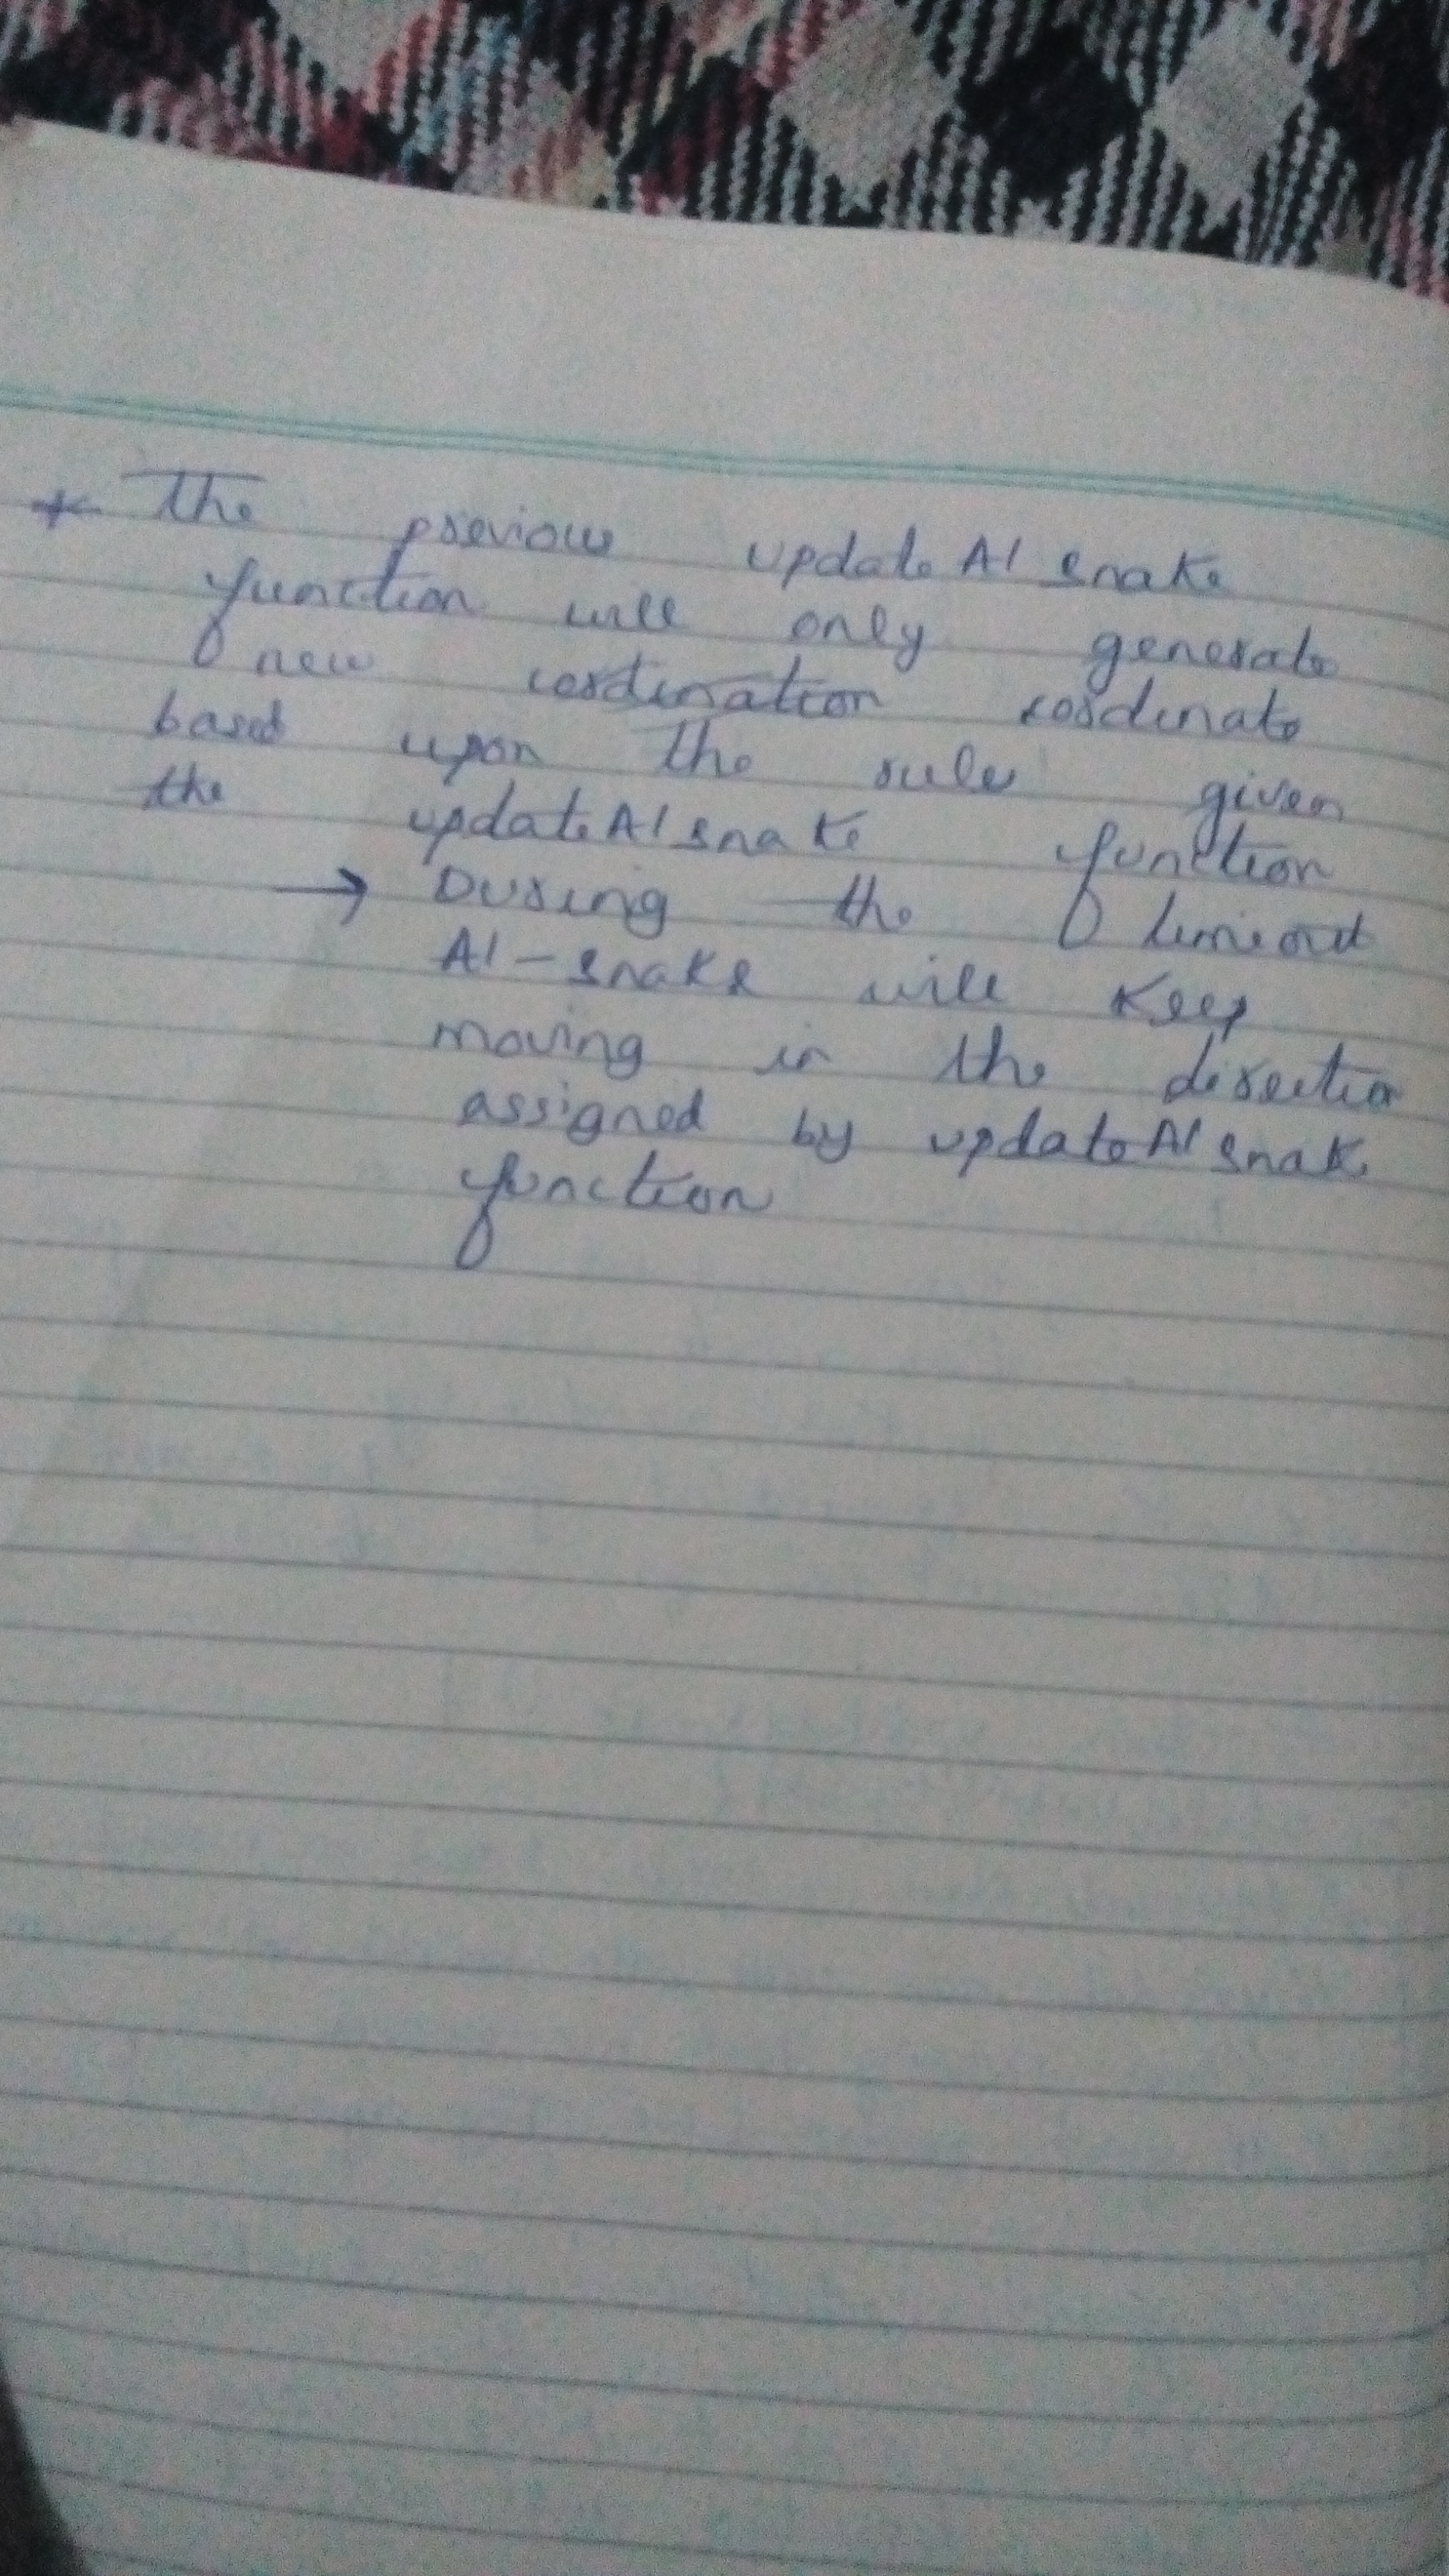 * The previous updateAIsnake
function will only generate
new cordination coordinate
based upon the rules given
the updateAIsnake function
→ During the timeout
AI-snake will keep
moving in the direction
assigned by updateAIsnake
function